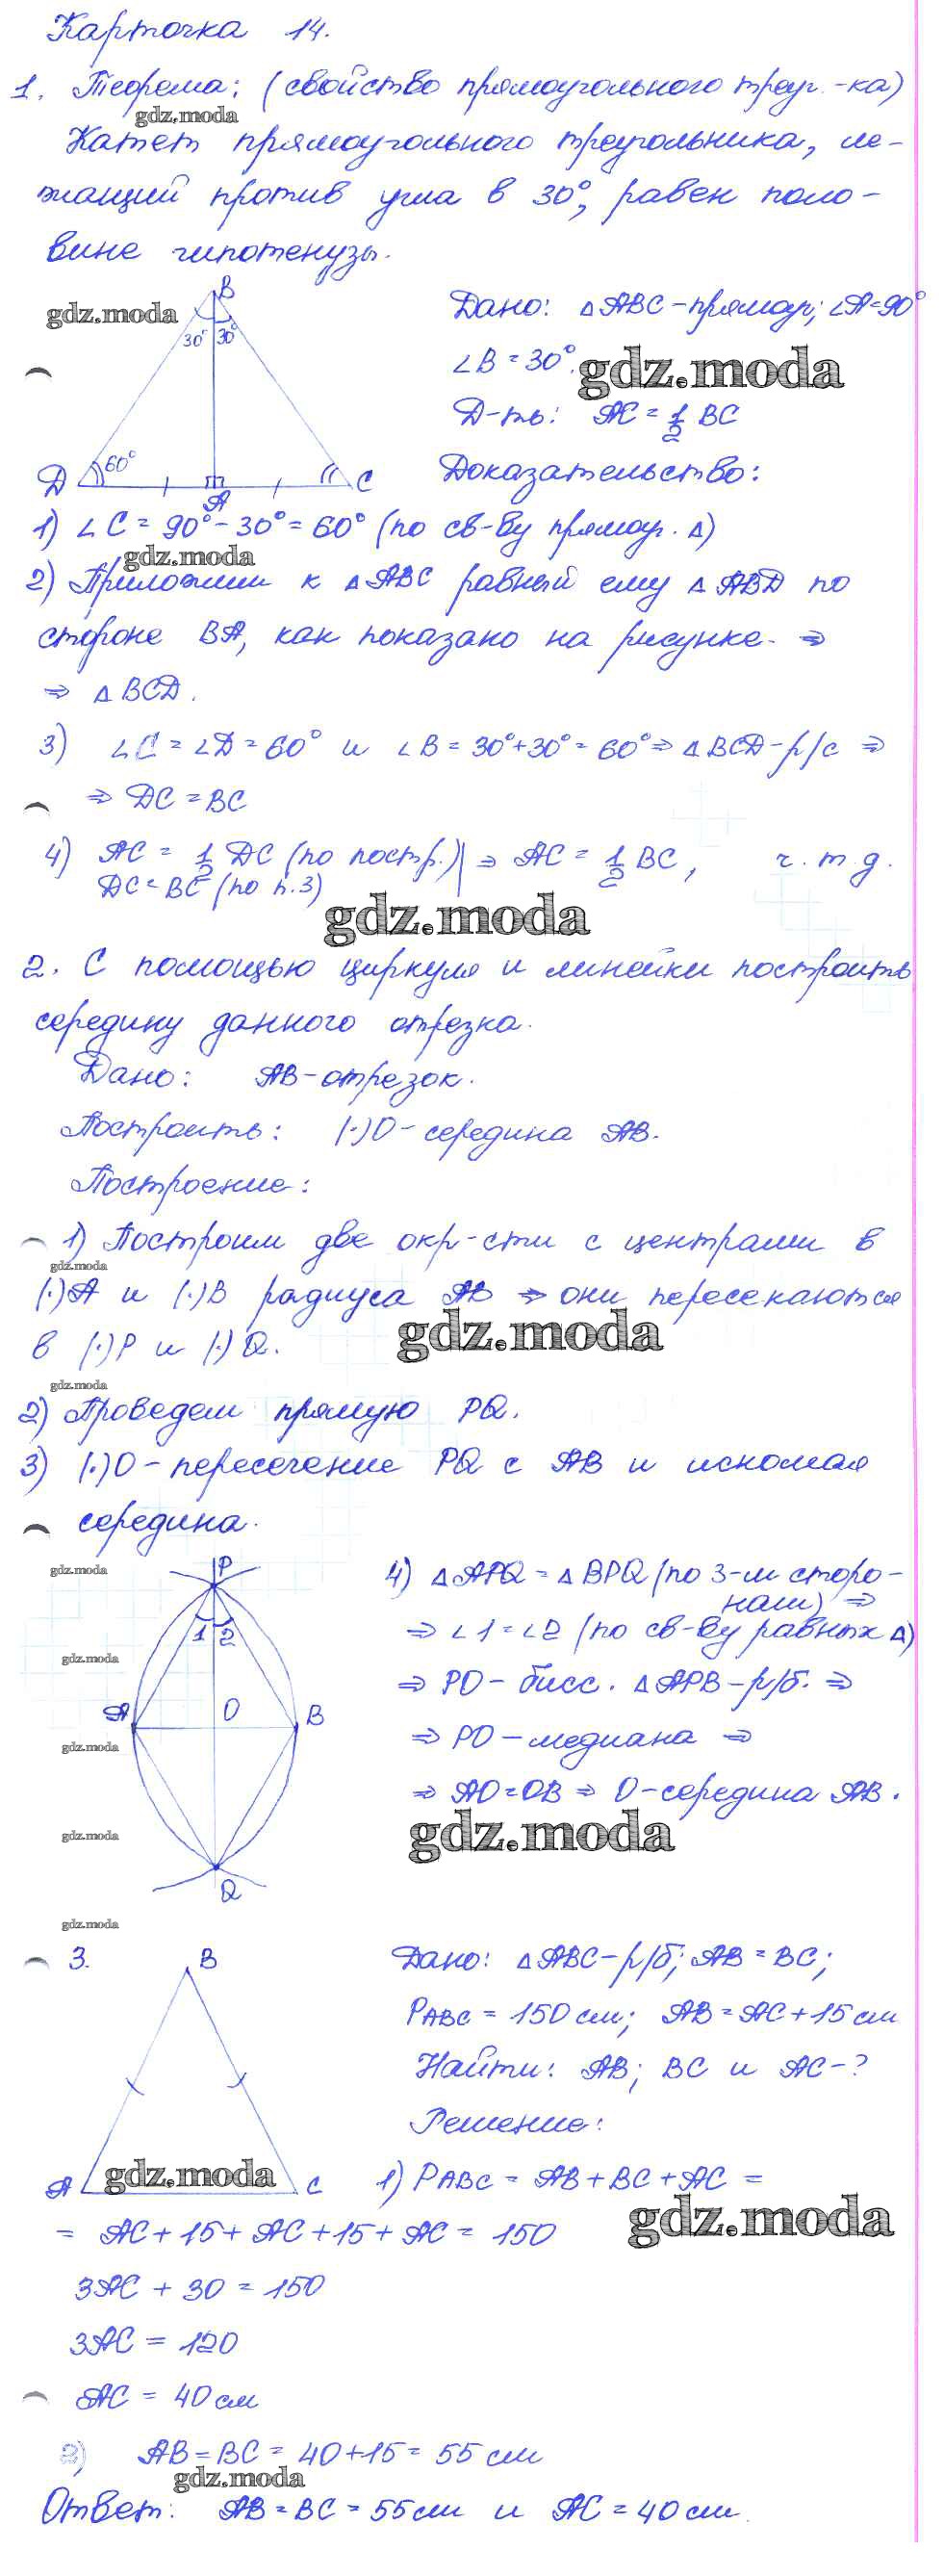 Карточка 14.
1. Теорема: (свойство прямоугольного треуг.-ка)
gdz.moda
Катет прямоугольного треугольника, ле-
жащий против угла в 30°, равен поло-
вине гипотенузы.
B
gdz.moda
30° 30°
D 60° A C
Дано: △ABC-прямоуг; ∠A=90°
∠B = 30°.
gdz.moda
Д-ть: AC = 1/2 BC
Доказательство:
1) ∠C = 90° - 30° = 60° (по св-ву прямоуг. △)
gdz.moda
2) Приложим к △ABC равный ему △ABD по
стороне BA, как показано на рисунке. ⇒
⇒ △BCD.
3) ∠C = ∠D = 60° и ∠B = 30°+30° = 60° ⇒ △BCD-р/с ⇒
⇒ DC = BC
4) AC = 1/2 DC (по постр.) | ⇒ AC = 1/2 BC, ч.т.д.
DC = BC (по п.3)
gdz.moda
2. С помощью циркуля и линейки построить
середину данного отрезка.
Дано: AB-отрезок.
Построить: (·)O-середина AB.
Построение:
1) Построим две окр-сти с центрами в
gdz.moda
(·)A и (·)B радиуса AB ⇒ они пересекаются
gdz.moda
в (·)P и (·)Q.
gdz.moda
2) Проведем прямую PQ.
3) (·)O-пересечение PQ с AB и искомая
середина.
gdz.moda
P
1 2
gdz.moda
A O B
gdz.moda
gdz.moda
Q
gdz.moda
4) △APQ = △BPQ (по 3-м сторо-
нам) ⇒
⇒ ∠1 = ∠2 (по св-ву равных △)
⇒ PO-бисс. △APB-р/б. ⇒
⇒ PO-медиана ⇒
⇒ AO=OB ⇒ O-середина AB.
gdz.moda
3.
B
A C
gdz.moda
Дано: △ABC-р/б; AB = BC;
PABC = 150 см; AB = AC + 15 см
Найти: AB; BC и AC-?
Решение:
1) PABC = AB + BC + AC =
gdz.moda
= AC + 15 + AC + 15 + AC = 150
3AC + 30 = 150
3AC = 120
AC = 40 см
2) AB = BC = 40 + 15 = 55 см
gdz.moda
Ответ: AB = BC = 55 см и AC = 40 см.